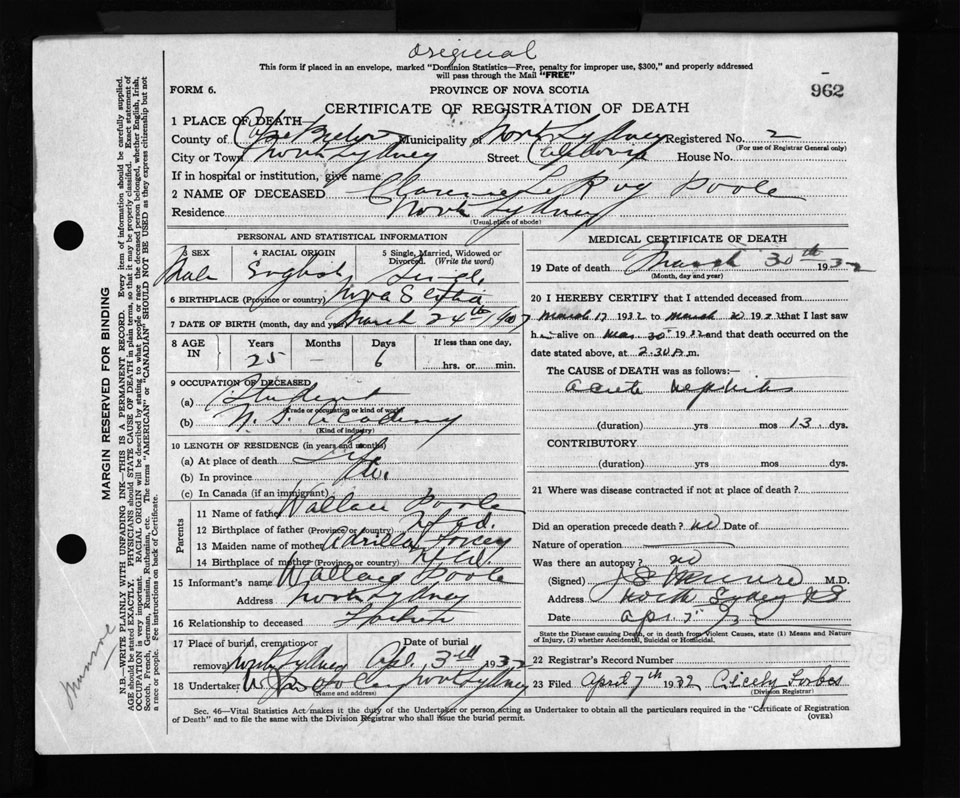 Original
This form if placed in an envelope, marked "Dominion Statistics—Free, penalty for improper use, $300," and properly addressed
will pass through the Mail "FREE"
FORM 6. PROVINCE OF NOVA SCOTIA 962
CERTIFICATE OF REGISTRATION OF DEATH
1 PLACE OF DEATH
County of Cape Breton Municipality of North Sydney Registered No. 2
(For use of Registrar General only)
City or Town North Sydney Street House No.
If in hospital or institution, give name
2 NAME OF DECEASED Clarence LeRoy Poole
Residence North Sydney
(Usual place of abode)
PERSONAL AND STATISTICAL INFORMATION
3 SEX 4 RACIAL ORIGIN 5 Single, Married, Widowed or Divorced. (Write the word)
Male English Single
6 BIRTHPLACE (Province or country) Nova Scotia
7 DATE OF BIRTH (month, day and year) March 24th 1907
8 AGE IN Years Months Days If less than one day,
25 — 6 hrs. or min.
9 OCCUPATION OF DECEASED
(a) Student
(Trade or occupation or kind of work)
(b) N. S. Academy
(Kind of industry)
10 LENGTH OF RESIDENCE (in years and months)
(a) At place of death Life
(b) In province Do.
(c) In Canada (if an immigrant)
Parents
11 Name of father Wallace Poole
12 Birthplace of father (Province or country) Nfld.
13 Maiden name of mother
14 Birthplace of mother (Province or country)
15 Informant's name Wallace Poole
Address North Sydney
16 Relationship to deceased Father
17 Place of burial, cremation or removal North Sydney Date of burial Apl. 3rd 1932
18 Undertaker North Sydney
(Name and address)
MEDICAL CERTIFICATE OF DEATH
19 Date of death March 30th 1932
(Month, day and year)
20 I HEREBY CERTIFY that I attended deceased from
March 17 1932 to March 30 1932 that I last saw
him alive on Mar. 30th 1932 and that death occurred on the
date stated above, at 2.30 A m.
The CAUSE of DEATH was as follows:
acute nephritis
(duration) yrs mos 13 dys.
CONTRIBUTORY
(duration) yrs mos dys.
21 Where was disease contracted if not at place of death?
Did an operation precede death? no Date of
Nature of operation
Was there an autopsy? no
(Signed) Munro M.D.
Address North Sydney NS
Date Apr. 5 / 32
State the Disease causing Death, or in death from Violent Causes, state (1) Means and Nature
of Injury, (2) whether Accidental, Suicidal or Homicidal.
22 Registrar's Record Number
23 Filed April 7th 1932 Forbes
(Division Registrar)
Sec. 46—Vital Statistics Act makes it the duty of the Undertaker or person acting as Undertaker to obtain all the particulars required in the "Certificate of Registration
of Death" and to file the same with the Division Registrar who shall issue the burial permit. (OVER)
MARGIN RESERVED FOR BINDING
N.B.—WRITE PLAINLY WITH UNFADING INK—THIS IS A PERMANENT RECORD. Every item of information should be carefully supplied.
AGE should be stated EXACTLY. PHYSICIANS should STATE CAUSE OF DEATH in plain terms, so that it may be properly classified. Exact statement of
OCCUPATION is very important. RACIAL ORIGIN will be described by stating to what people or race the deceased person belonged, whether English, Irish,
Scotch, French, German, Russian, Ruthenian, etc. The terms "AMERICAN" or "CANADIAN" SHOULD NOT BE USED as they express citizenship but not
a race or people. See instructions on back of Certificate.
Munroe